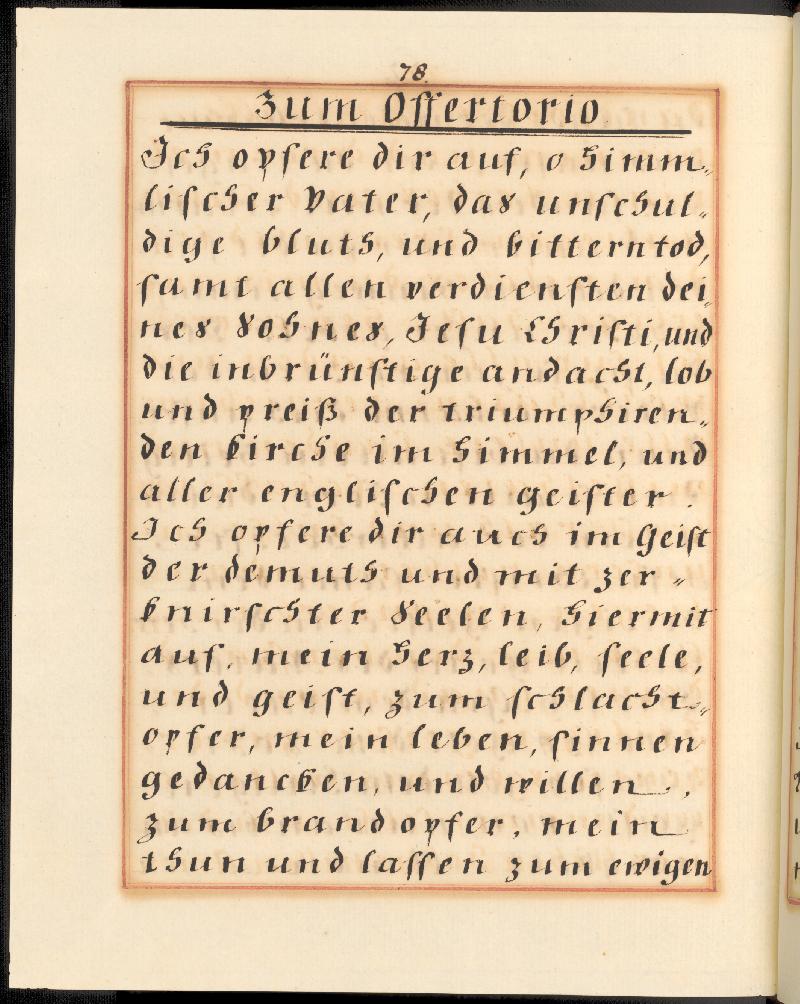 78.
Zum Offertorio
Ich opfere dir auf, o himm„
lischer Vater, das unschul„
dige bluth, und bitterntod,
samt allen verdiensten dei„
nes Sohnes, Jesu Christi, und
die inbrünstige andacht, lob
und preiß der triumphiren„
den kirche im himmel, und
aller englischen geister.
Ich opfere dir auch im Geist
der demuth und mit zer„
knirschter Seelen, hiermit
auf, mein herz, leib, seele,
und geist, zum schlacht„
opfer, mein leben, sinnen
gedancken, und willen,
zum brandopfer, mein
thun und lassen zum ewigen